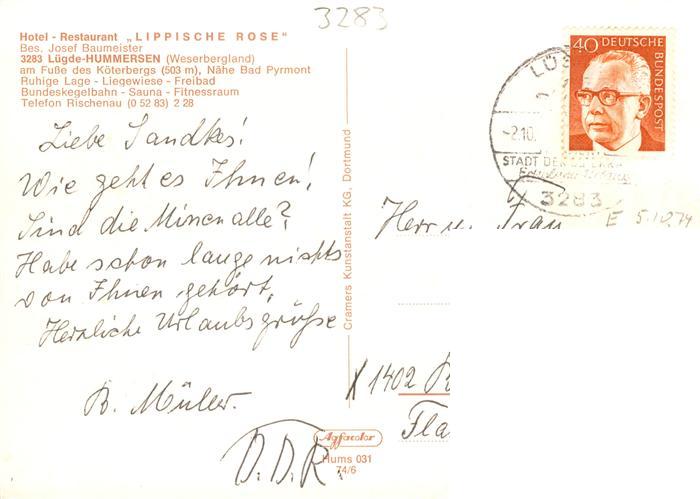 3283
Hotel - Restaurant „LIPPISCHE ROSE"
Bes. Josef Baumeister
3283 Lügde-HUMMERSEN (Weserbergland)
am Fuße des Köterbergs (503 m), Nähe Bad Pyrmont
Ruhige Lage - Liegewiese - Freibad
Bundeskegelbahn - Sauna - Fitnessraum
Telefon Rischenau (0 52 83) 2 28
Liebe Sandkes!
Wie geht es Ihnen!
Sind die Minen alle?
Habe schon lange nichts
von Ihnen gehört,
Herzliche Urlaubsgrüße
B. Müller.
Cramers Kunstanstalt KG, Dortmund
40 DEUTSCHE
BUNDESPOST
LÜG
-2.10.
STADT DER
3283
E 5.10.74
Herr u. Frau
X 1402 B
Fla
D.D.R.
Agfacolor
Hums 031
74/6